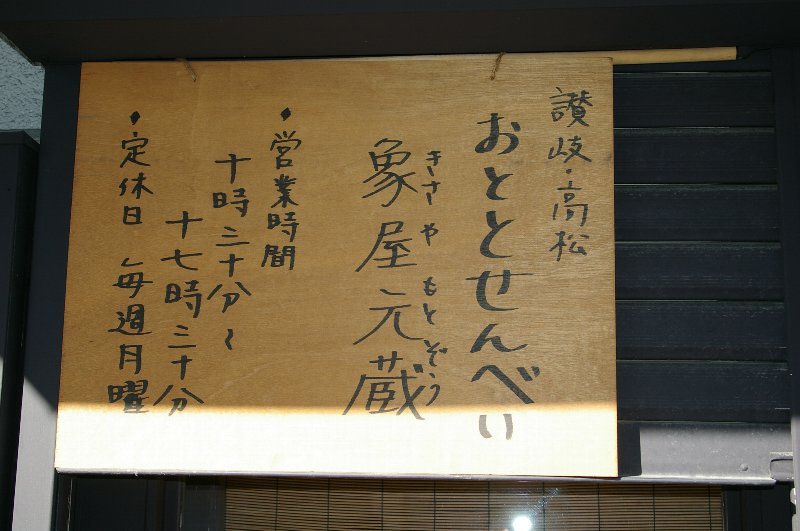 讃岐・高松
おととせんべい
きさや もとぞう
象屋元蔵
・営業時間
十時三十分〜
十七時三十分
・定休日 毎週月曜